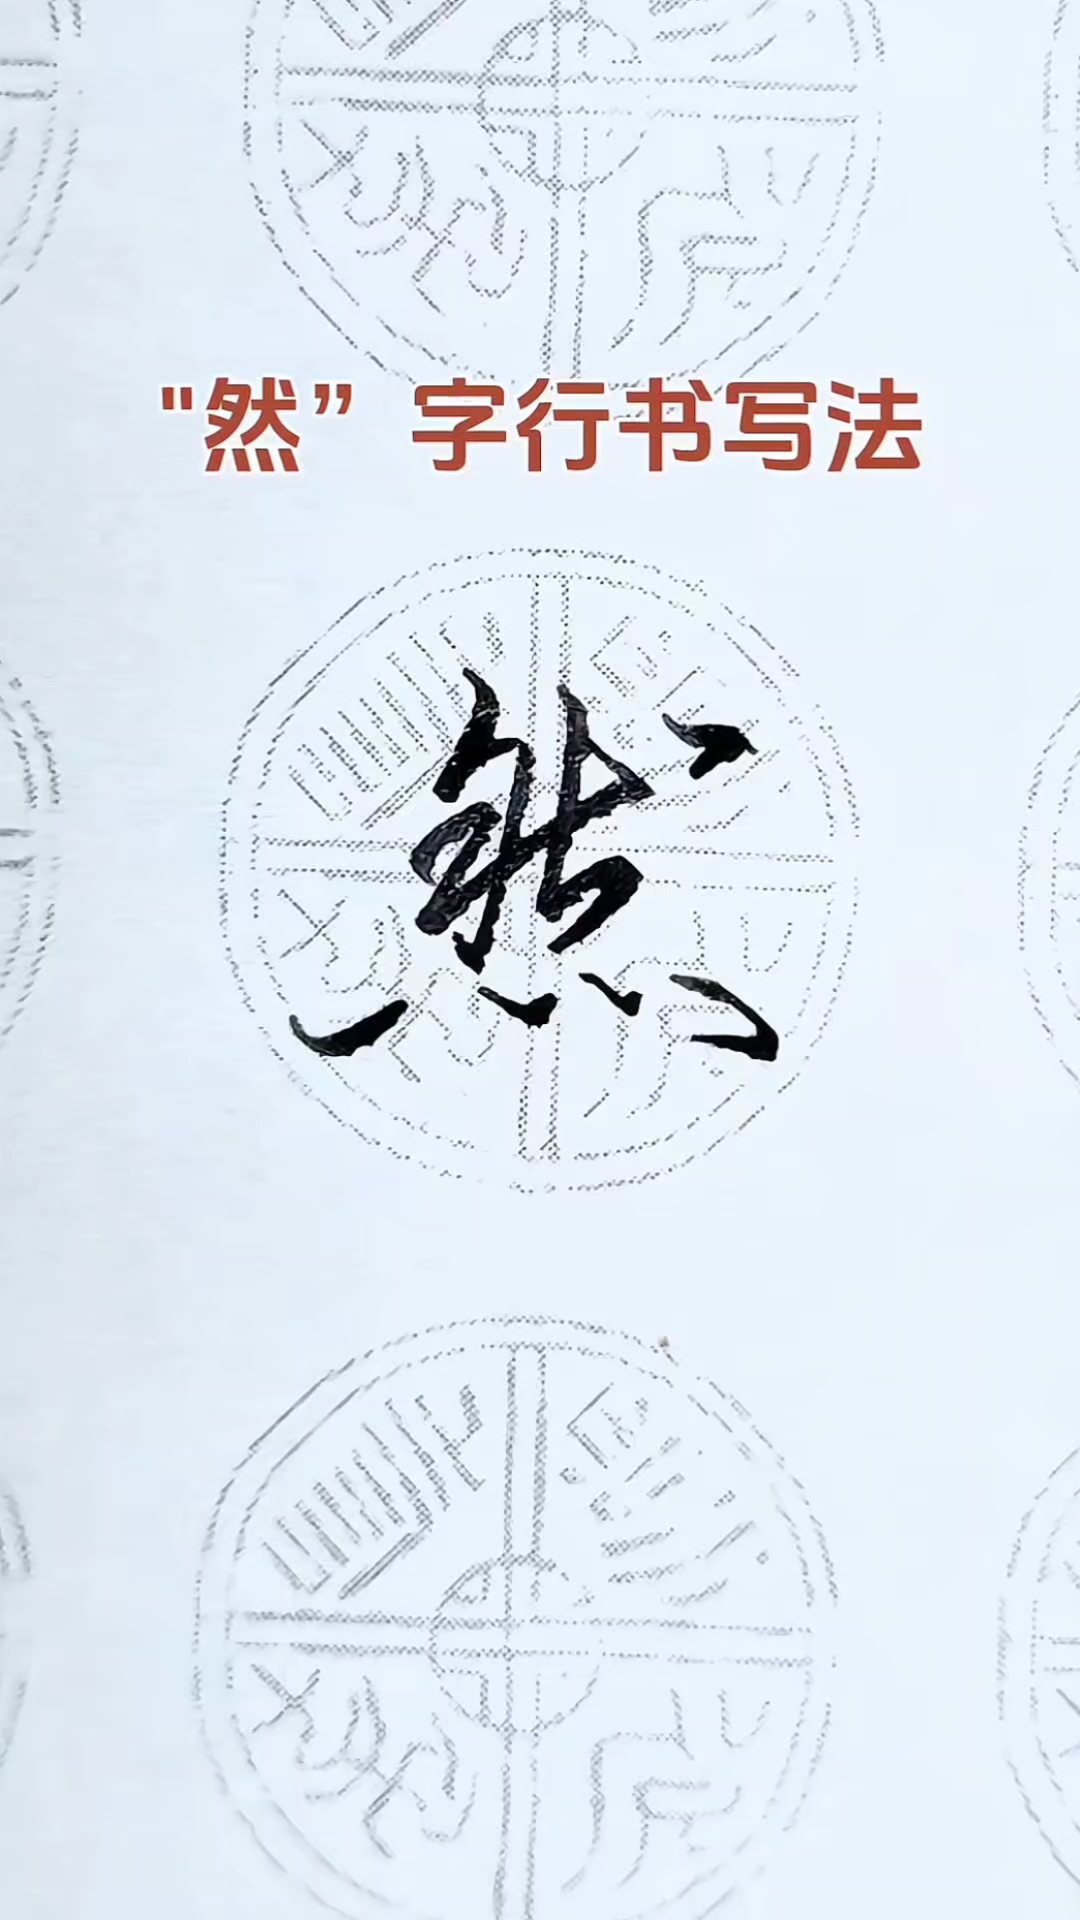 "然”字行书写法
然